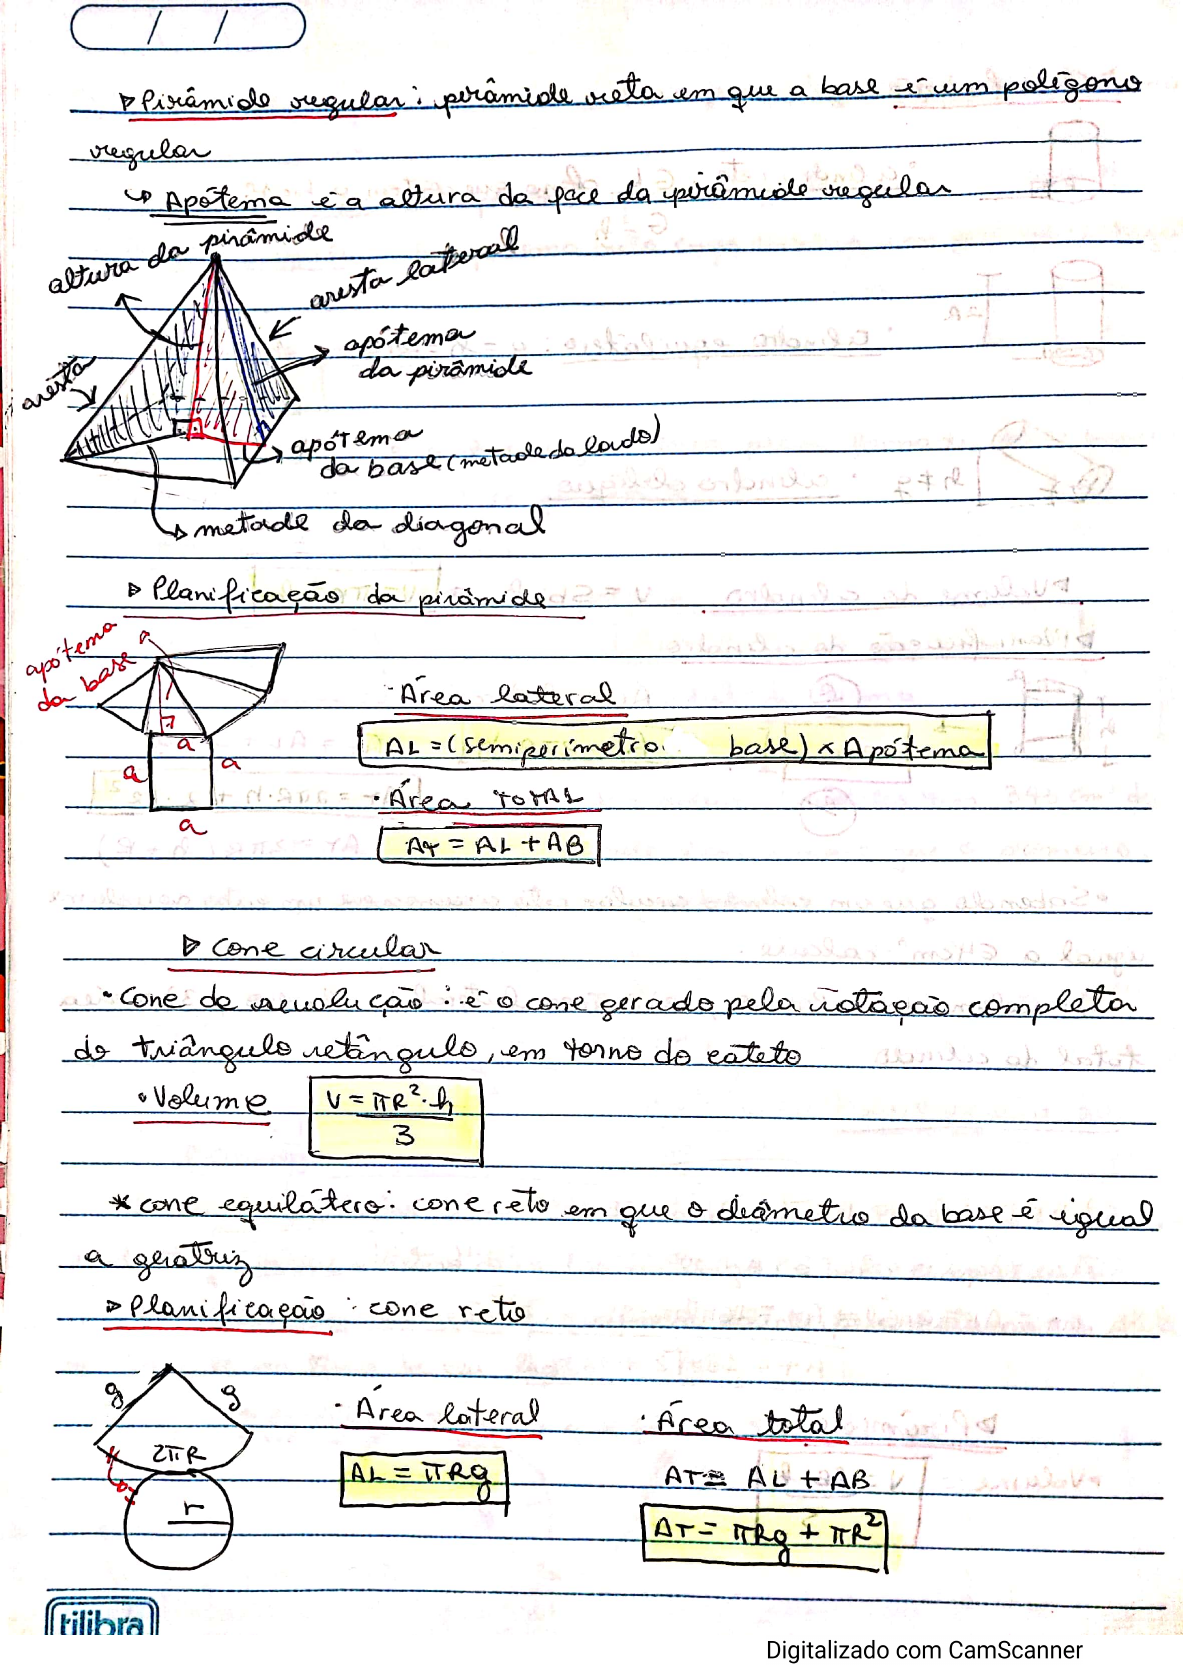 / /
▷ Pirâmide regular: pirâmide reta em que a base é um polígono
regular
↳ Apótema é a altura da face da pirâmide regular
altura da pirâmide
aresta lateral
apótema
da pirâmide
aresta
apótema
da base (metade do lado)
metade da diagonal
▷ Planificação da pirâmide
apótema
da base
· Área lateral
AL = (semiperímetro base) x Apótema
a
a
a
a
· Área TOTAL
AT = AL + AB
▷ Cone circular
· Cone de revolução: é o cone gerado pela rotação completa
do triângulo retângulo, em torno do cateto
· Volume
V = πR². h
3
* cone equilátero: cone reto em que o diâmetro da base é igual
a geratriz
▷ Planificação: cone reto
g
g
2πR
r
· Área lateral
AL = πRg
· Área total
AT = AL + AB
AT = πRg + πR²
tilibra
Digitalizado com CamScanner